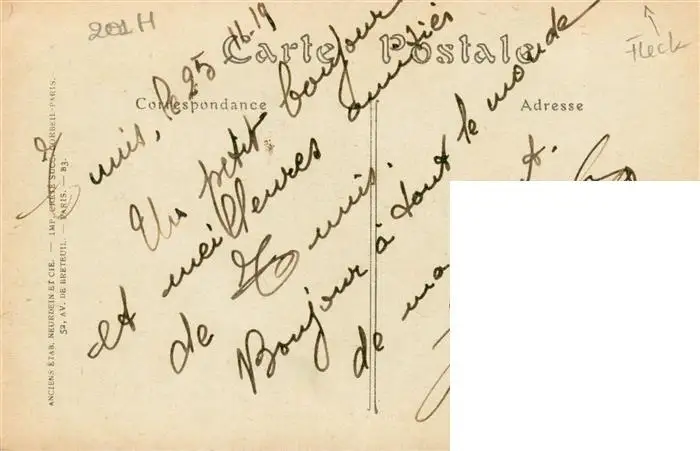 201H
Fleck
Carte Postale
Correspondance
Adresse
ANCIENS ÉTAB. NEURDEIN ET CIE. — IMP. CRÉTÉ SUCC. CORBEIL-PARIS.
52, AV. DE BRETEUIL. — PARIS. — B3.
Tunis, le 25
Un petit bonjour
et meilleures amitiés
de Tunis.
Bonjour à tout le monde
de ma